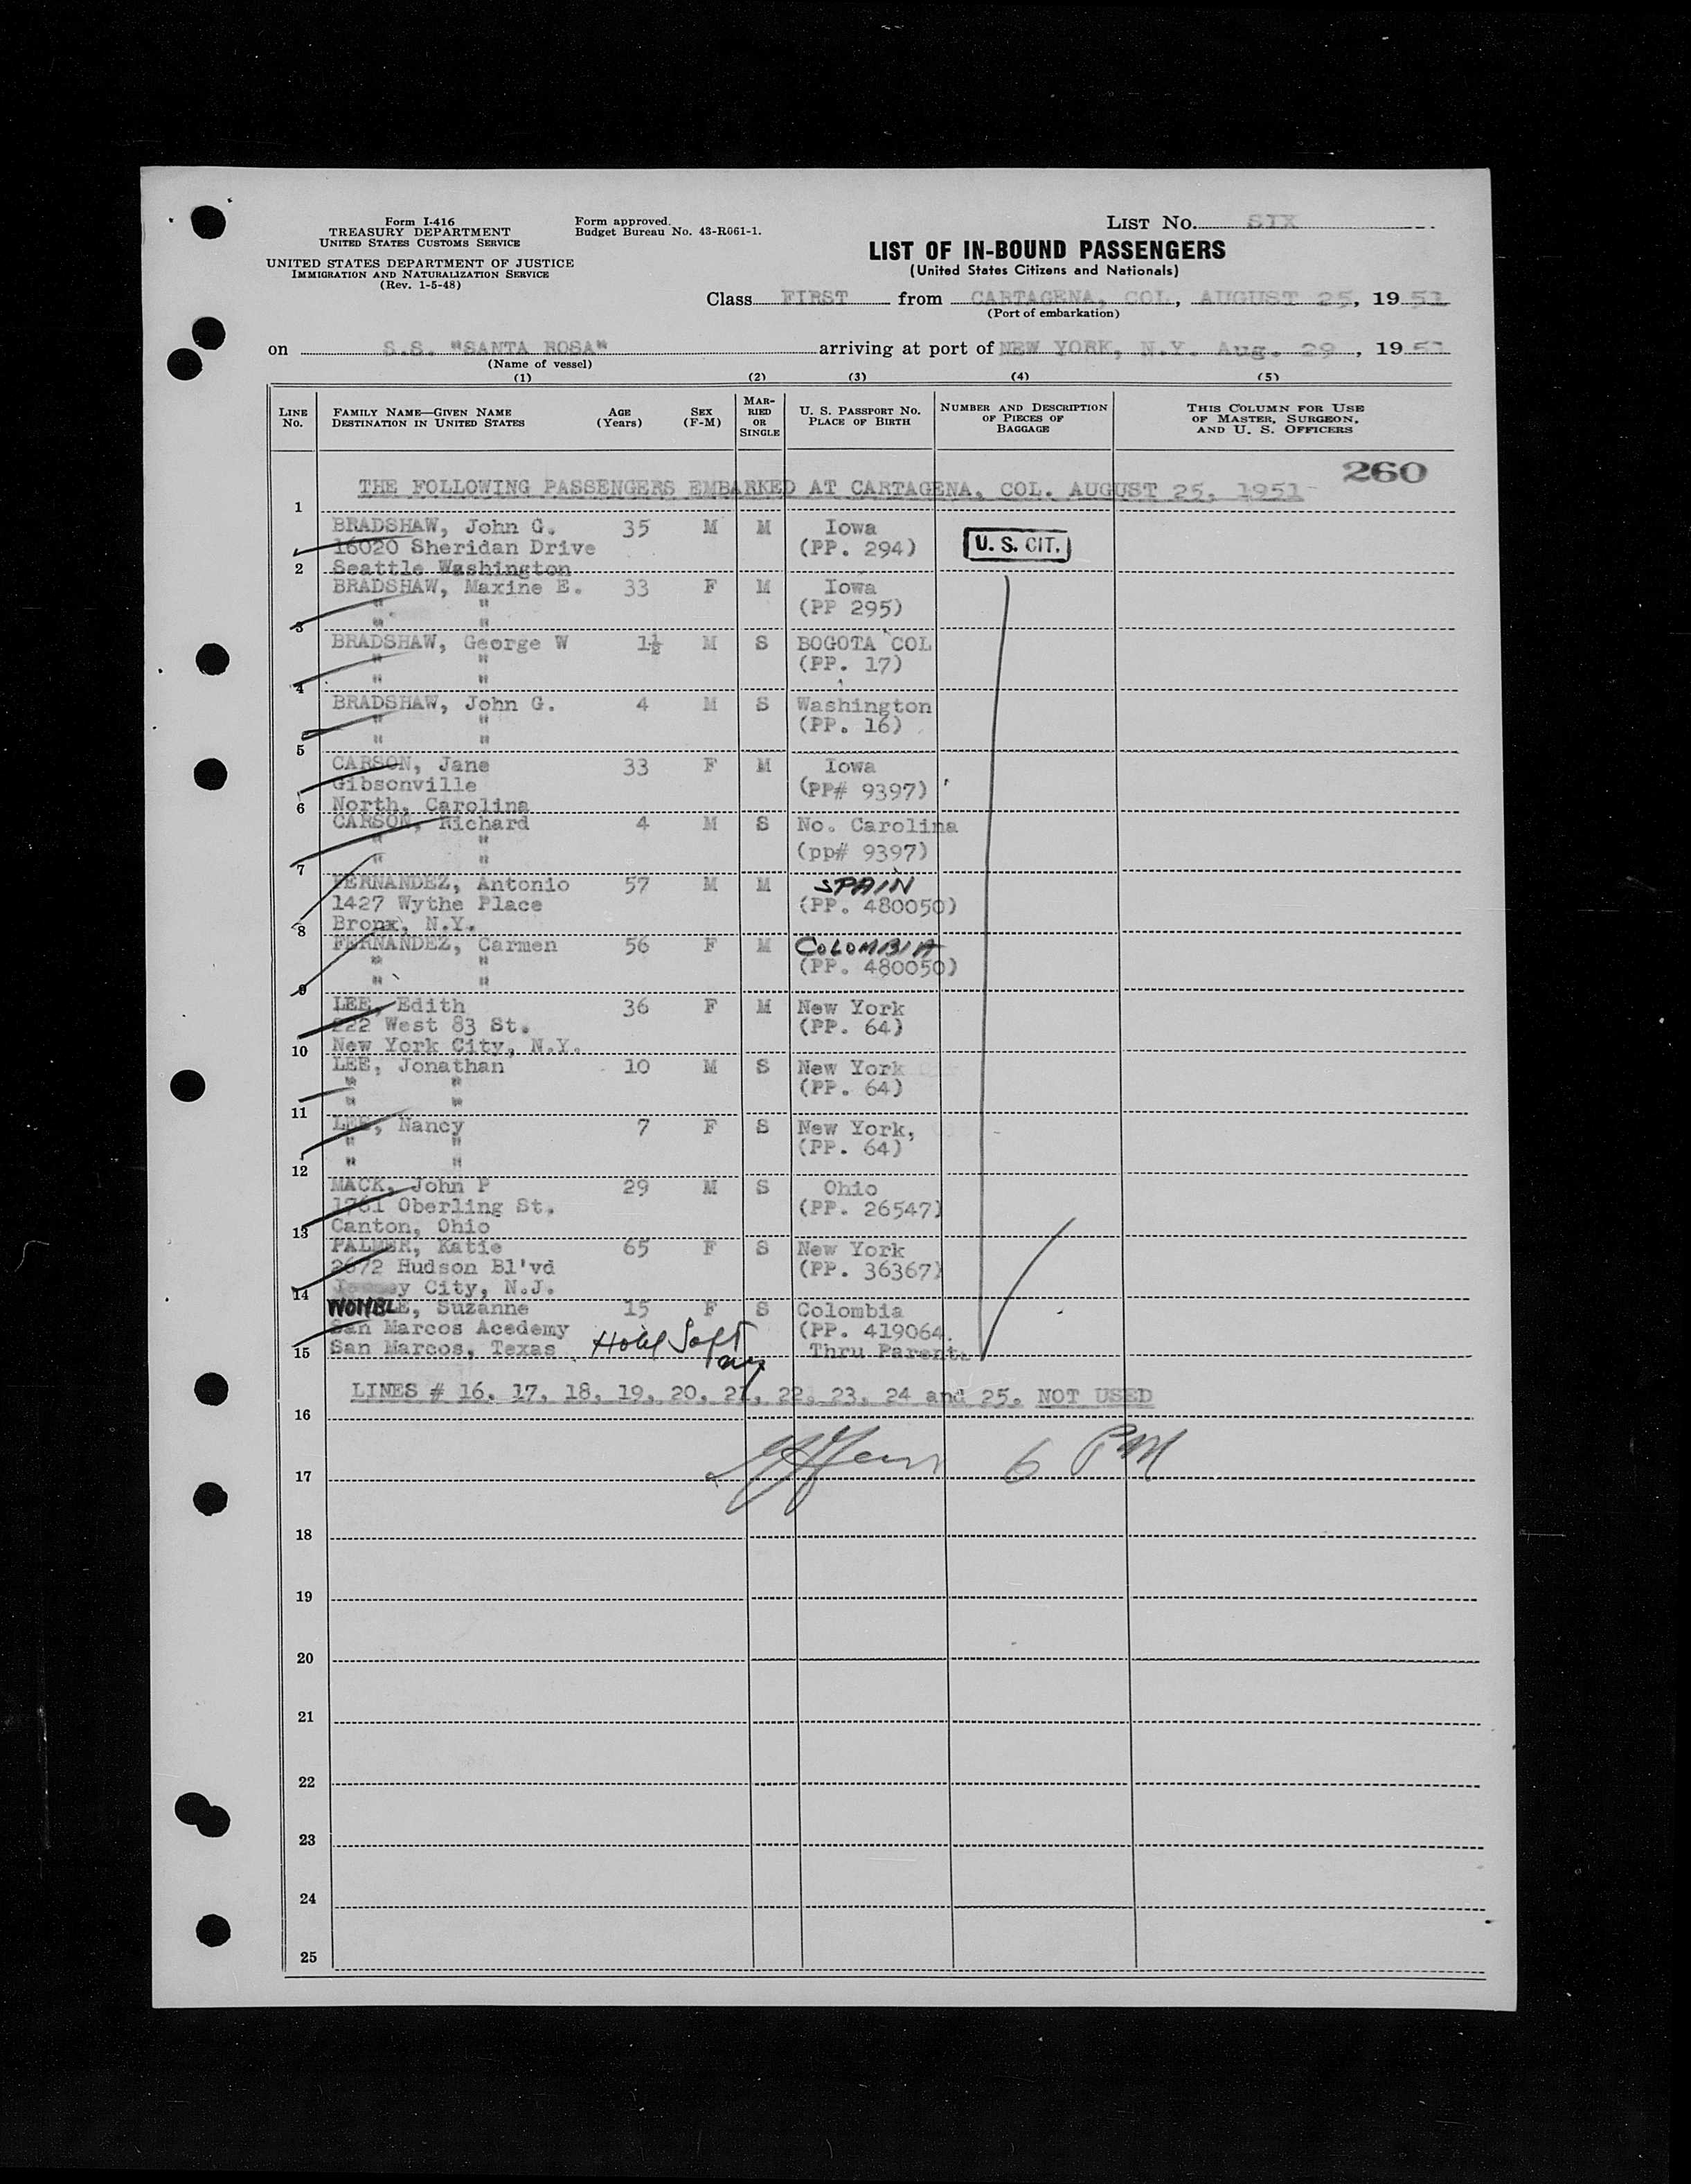 Form I-416
TREASURY DEPARTMENT
UNITED STATES CUSTOMS SERVICE
UNITED STATES DEPARTMENT OF JUSTICE
IMMIGRATION AND NATURALIZATION SERVICE
(Rev. 1-5-48)
Form approved.
Budget Bureau No. 43-R061-1.
LIST No. SIX
LIST OF IN-BOUND PASSENGERS
(United States Citizens and Nationals)
Class FIRST from CARTAGENA, COL, AUGUST 25, 19 51
(Port of embarkation)
on S.S. "SANTA ROSA" arriving at port of NEW YORK, N.Y. Aug. 29, 19 51
(Name of vessel)
(1) (2) (3) (4) (5)
LINE No.
FAMILY NAME—GIVEN NAME
DESTINATION IN UNITED STATES
AGE (Years)
SEX (F-M)
MARRIED OR SINGLE
U. S. PASSPORT NO.
PLACE OF BIRTH
NUMBER AND DESCRIPTION OF PIECES OF BAGGAGE
THIS COLUMN FOR USE OF MASTER, SURGEON, AND U. S. OFFICERS
260
1 THE FOLLOWING PASSENGERS EMBARKED AT CARTAGENA, COL. AUGUST 25, 1951
BRADSHAW, John G. 35 M M Iowa
16020 Sheridan Drive (PP. 294) U. S. CIT.
2 Seattle Washington
BRADSHAW, Maxine E. 33 F M Iowa
" " (PP 295)
3 " "
BRADSHAW, George W 1½ M S BOGOTA COL
" " (PP. 17)
4 " "
BRADSHAW, John G. 4 M S Washington
" " (PP. 16)
5 " "
CARSON, Jane 33 F M Iowa
Gibsonville (PP# 9397)
6 North, Carolina
CARSON, Richard 4 M S No. Carolina
" " (pp# 9397)
7 " "
FERNANDEZ, Antonio 57 M M SPAIN
1427 Wythe Place (PP. 480050)
8 Bronx, N.Y.
FERNANDEZ, Carmen 56 F M COLOMBIA
" " (PP. 480050)
9 " "
LEE, Edith 36 F M New York
222 West 83 St. (PP. 64)
10 New York City, N.Y.
LEE, Jonathan 10 M S New York
" " (PP. 64)
11 " "
LEE, Nancy 7 F S New York,
" " (PP. 64)
12 " "
MACK, John P 29 M S Ohio
1761 Oberling St. (PP. 26547)
13 Canton, Ohio
PALMER, Katie 65 F S New York
2672 Hudson Bl'vd (PP. 36367)
14 Jersey City, N.J.
WOMBLE, Suzanne 15 F S Colombia
San Marcos Acedemy Hotel (PP. 419064.
15 San Marcos, Texas Thru Parents
LINES # 16, 17, 18, 19, 20, 21, 22, 23, 24 and 25. NOT USED
16
6 PM
17
18
19
20
21
22
23
24
25